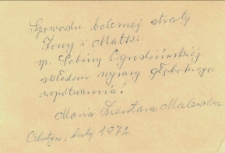 Z powodu bolesnej straty
Żony i Matki
śp. Sabiny Ogrodzińskiej
składam wyrazy głębokiego
współczucia!
Maria Zientara Malewska
Olsztyn, luty 1972